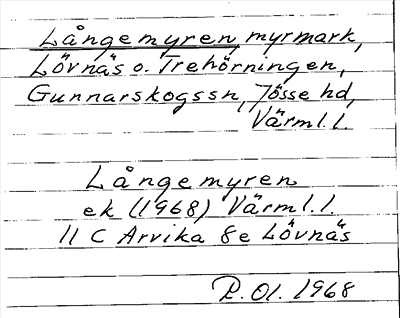 Långemyren, myrmark,
Lövnäs o. Trehörningen,
Gunnarskogssn, Jösse hd,
Värml.l.
Långemyren
ek (1968) Värml.l.
11 C Arvika 8e Lövnäs
R.Ol. 1968